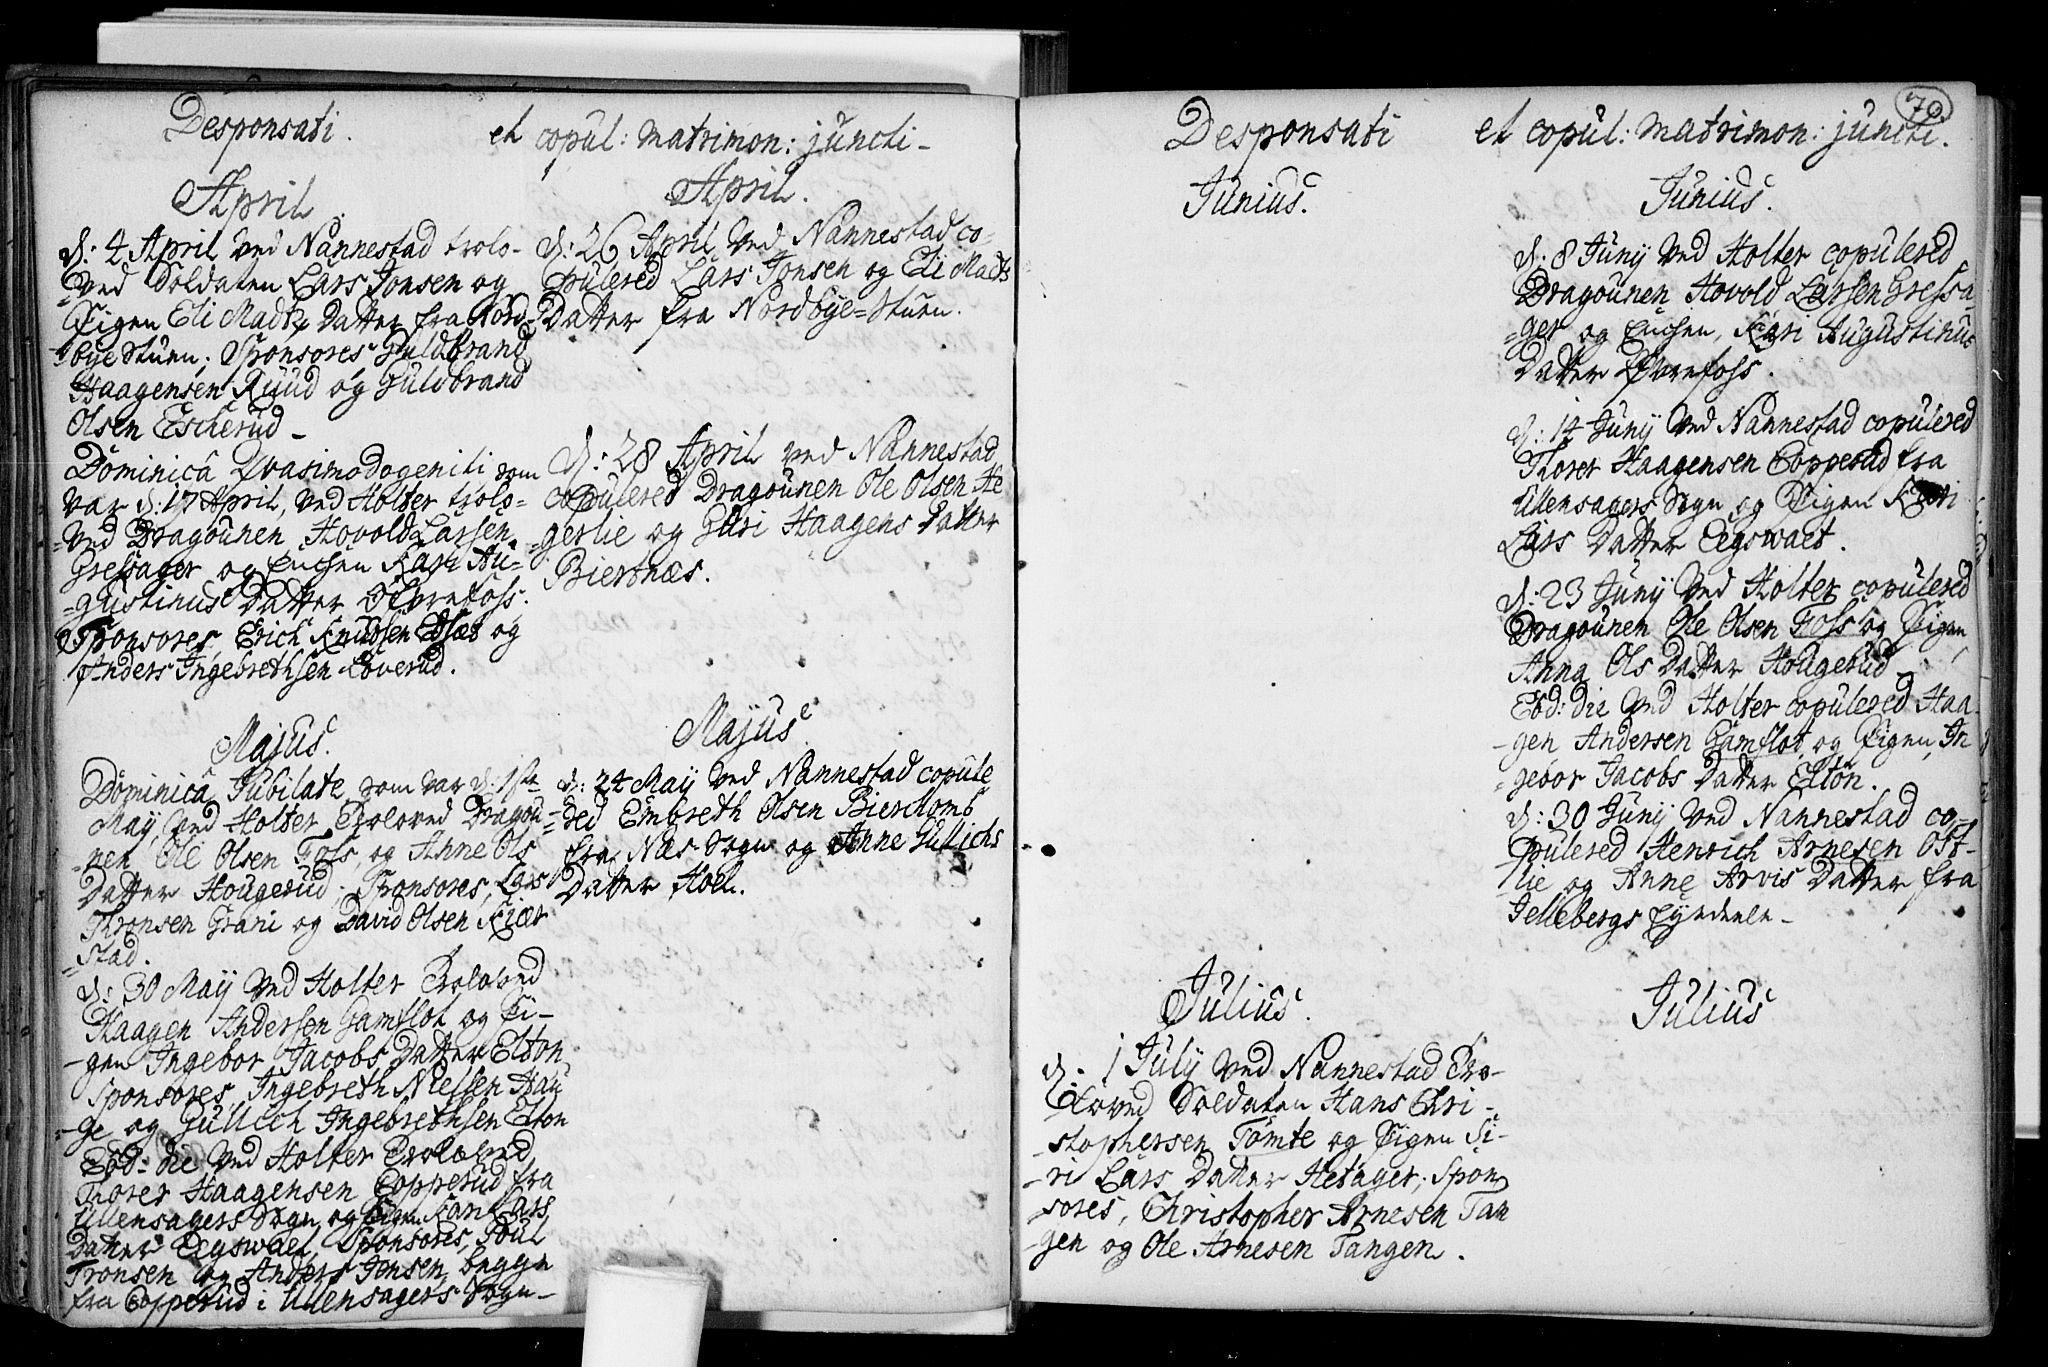 Desponsati.
April
d: 4 April ved Nannestad trolo-
=ved Soldaten Lars Jonsen og
Pigen Eli Madts Datter fra Nord-
=bye Stuen; Sponsores Guldbrand
Haagensen Ruud og Guldbrand
Olsen Escherud_
Dominica Qvasimodogeniti som
var d: 17 April, ved Holter trolo=
=ved Dragounen Hovold Larsen
Gressager og Enchen Kari Au=
=gustinus Datter Øfvrefoss.
Sponsores, Erich Knudsen og
Anders Ingebrethsen Loverud.
Majus.
Dominica Jubilate, som var d: 1ste
Maij ved Holter Troloved Dragou
=nen Ole Olsen Foss, og Anne Ols
Datter Hougerud; Sponsores, Lars
Thronsen Grani og David Olsen Kiær
=stad.
d: 30 Maij ved Holter Troloved
Haagen Andersen Gamflot og Pi-
-gen Ingebor Jacobs Datter Elton
Sponsores Ingebreth Nielsen Hau
-ge og Gullich Ingebrethsen Elton
Eod: die ved Holter Troloved
Thorer Haagensen Copperud fra
Ullensagers Sogn og Pigen Kari Lars
Datter Eegswaet, Sponsores, Poul
Tronsen og Anders Jensen begge
fra Copperud i Ullensagers Sogn_
et copul: matrimon: juncti_
April.
d: 26 April ved Nannestad co-
pulered Lars Jonsen og Eli Madts
Datter fra Nordbye=Stuen.
d: 28 April ved Nannestad
copulered Dragounen Ole Olsen He
=gerlie og Guri Haagens Datter
Biertnæs.
Majus
d: 24 Maij ved Nannestad copule
=red Embreth Olsen
fra Næs Sogn og Anne Gullichs
Datter Hoel.
70.
Desponsati
Junius.
Julius.
d. 1 July ved Nannestad Tro-
-loved Soldaten Hans Chri-
-stophersen Tømte og Pigen Si-
-ri Lars Datter Hetager; Spon
-sores, Christopher Arnesen Tan
-gen og Ole Arnesen Tangen.
et copul: matrimon: juncti.
Junius.
d: 8 Junij ved Holter copulered
Dragounen Hovold Larsen Gressa
=ger og Enchen, Kari Augustinus
Datter Øfvrefoss.
d: 14 Junij ved Nannestad copulered
Thorer Haagensen Copperud fra
Ullensagers Sogn og Pigen Kari
Lars Datter Eegswaet.
d: 23 Junij ved Holter copulered
Dragounen Ole Olsen Foss og Pigen
Anna Ols Datter Hougerud_
Eod: die ved Holter copulered Haa-
-gen Andersen Gamflot og Pigen In
=gebor Jacobs Datter Elton.
d: 30 Junij ved Nannestad co=
pulered Henrich Arnesen Ost-
lie og Anne Arvis Datter fra
Jellebergs Eyendeele_
Julius